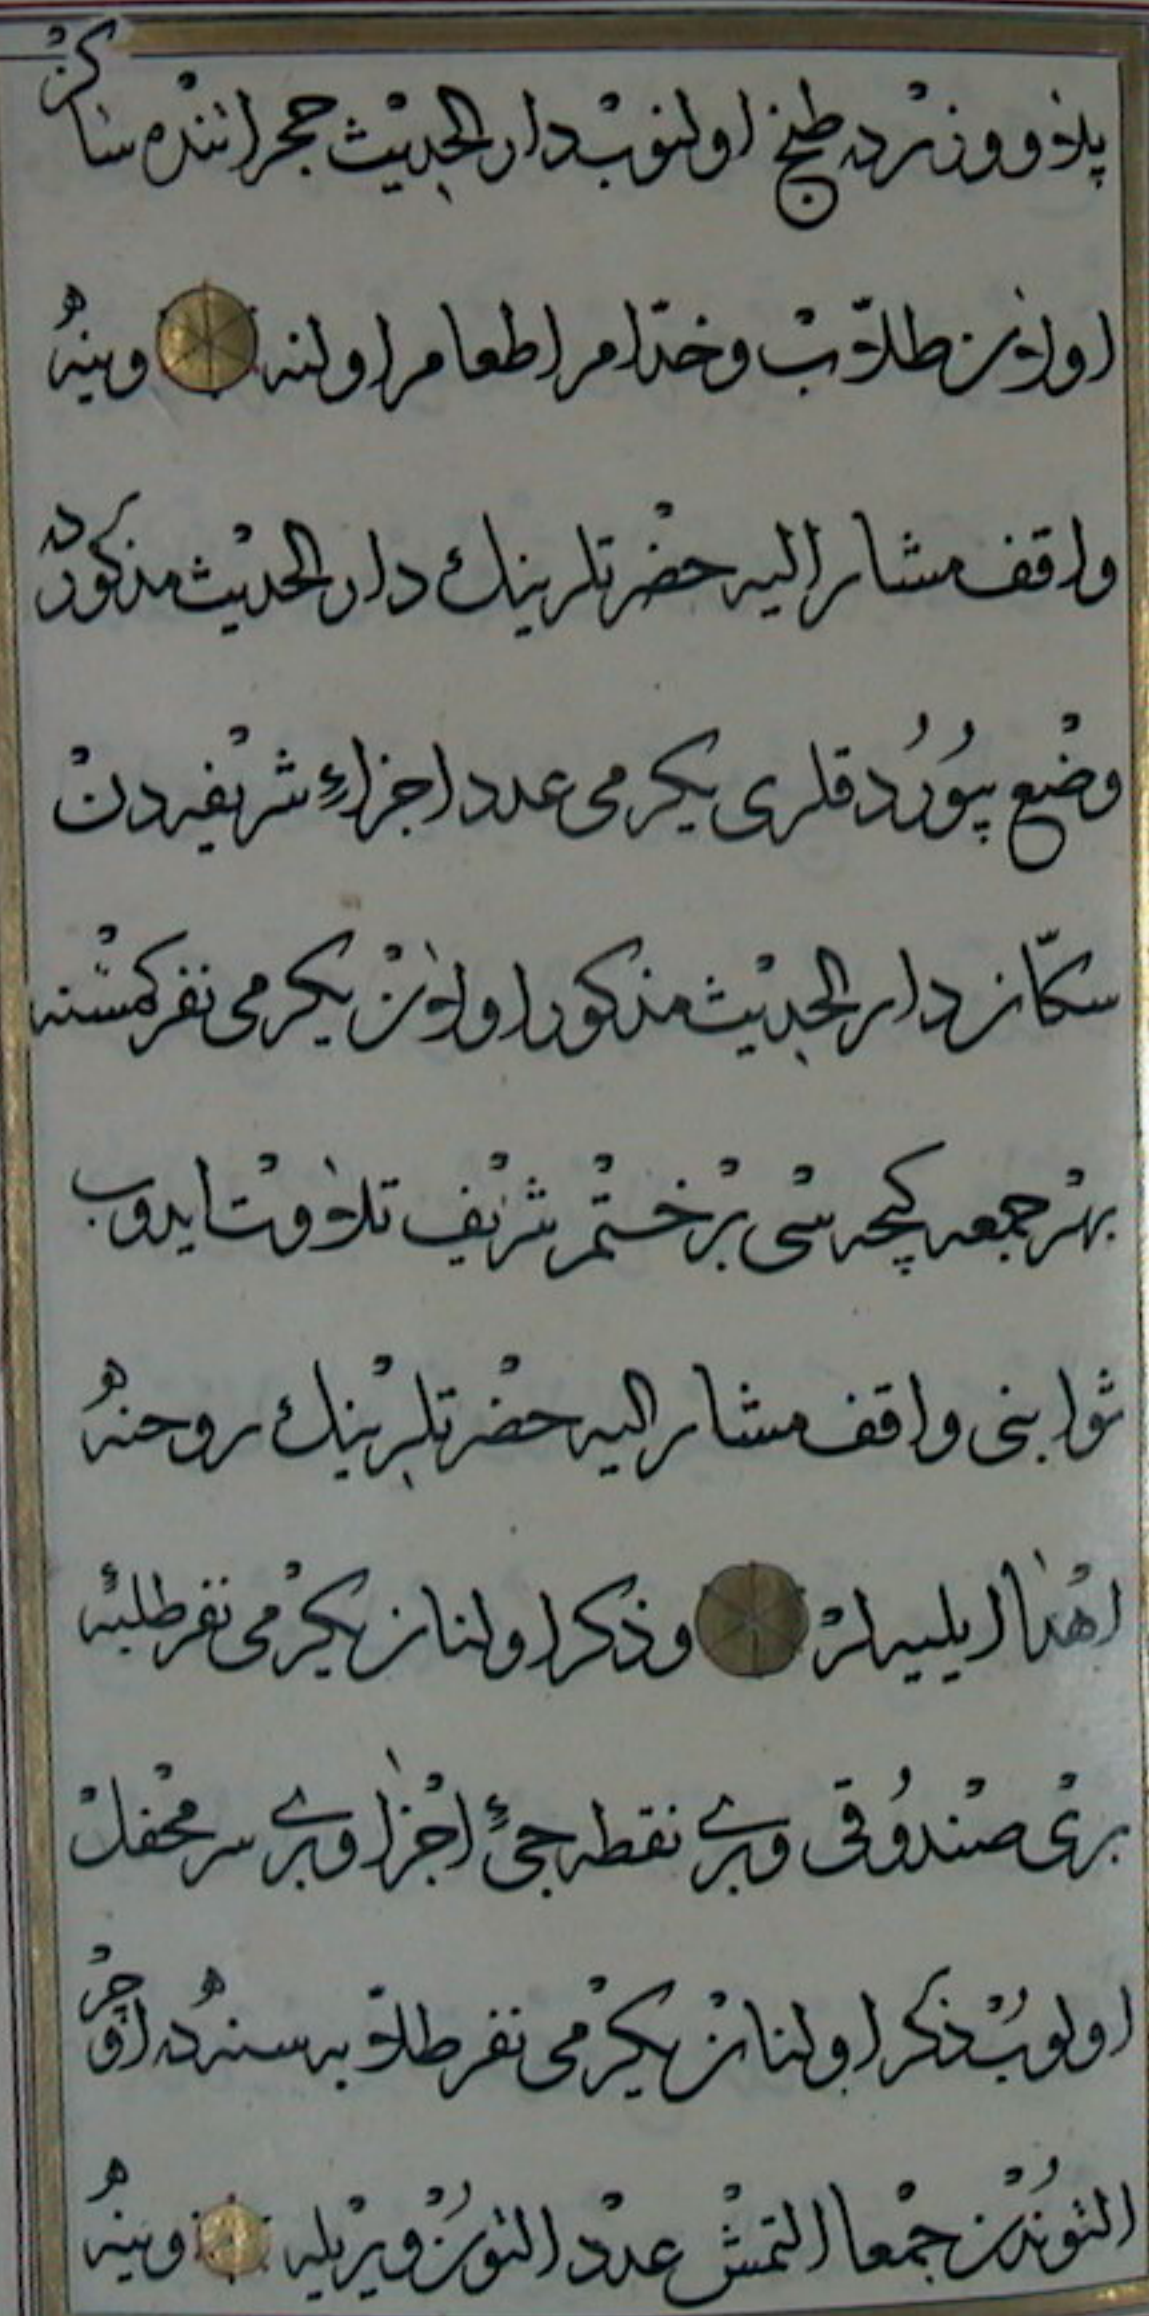 پلاو و زرده طبخ اولنوب دار الحديث حجراتنده ساكن
اولان طلاب و خدّامه اطعام اولنه وينه
واقف مشار اليه حضرتلرينك دار الحديث مذكورده
وضع بيوردقلرى يكرمى عدد اجزاء شريفه دن
سكّان دار الحديث مذكور اولان يكرمى نفر كمسنه
بهر جمعه كيجه سى بر ختم شريف تلاوت ايدوب
ثوابنى واقف مشار اليه حضرتلرينك روحنه
اهدا ايليه لر وذكر اولنان يكرمى نفر طلبه
برى صندوقى وبرى نقطه جئ اجزا وبرى سر محفل
اولوب ذكر اولنان يكرمى نفر طلابه سنه ده اوچر
التوندن جمعا التمش عدد التون ويريله وينه